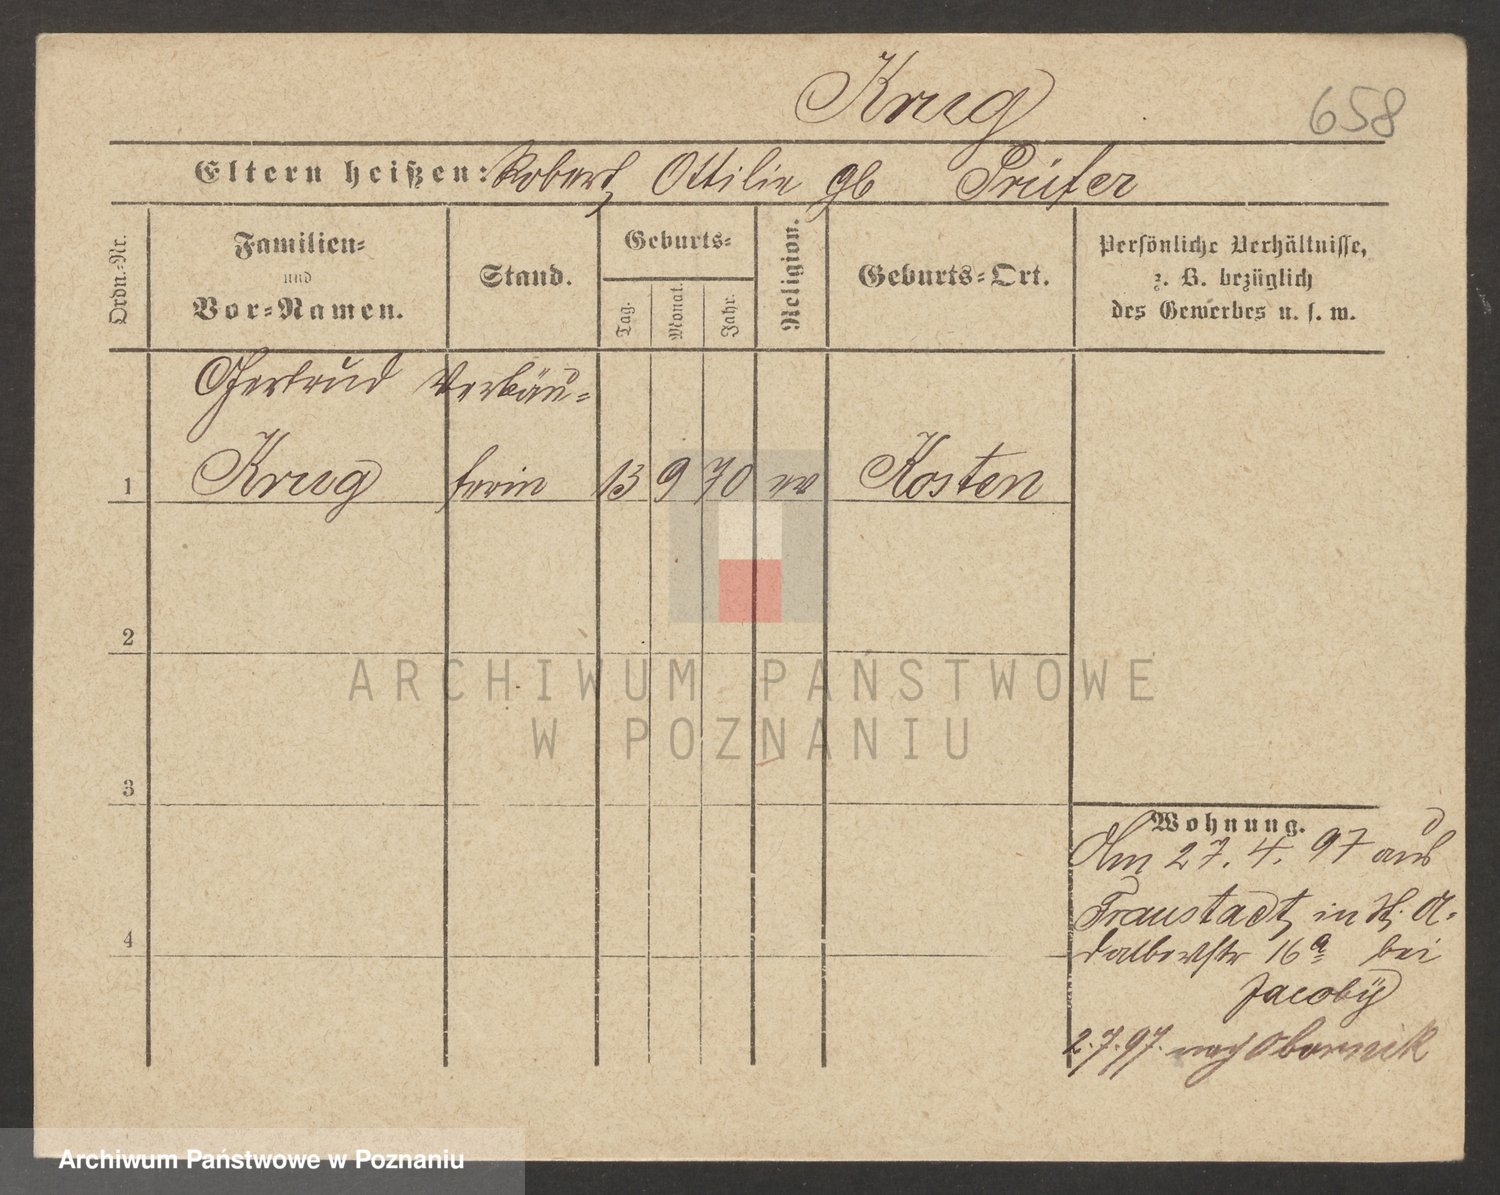 Krug
658
Eltern heißen: Robert, Ottilie gb Prüfer
Ordn.-Nr.
Familien-
und
Vor-Namen.
Stand.
Geburts-
Tag.
Monat.
Jahr.
Religion.
Geburts-Ort.
Persönliche Verhältnisse,
z. B. bezüglich
des Gewerbes u. s. w.
Gertrud Verkäu-
1 Krug ferin 13 9 70 ev Kosten
2
3
4
Wohnung.
Am 27. 4. 97 aus
Fraustadt, in H. A-
dalbertstr 16a bei
Jacoby
2.7.97. nach Obornik
ARCHIWUM PAŃSTWOWE
W POZNANIU
Archiwum Państwowe w Poznaniu